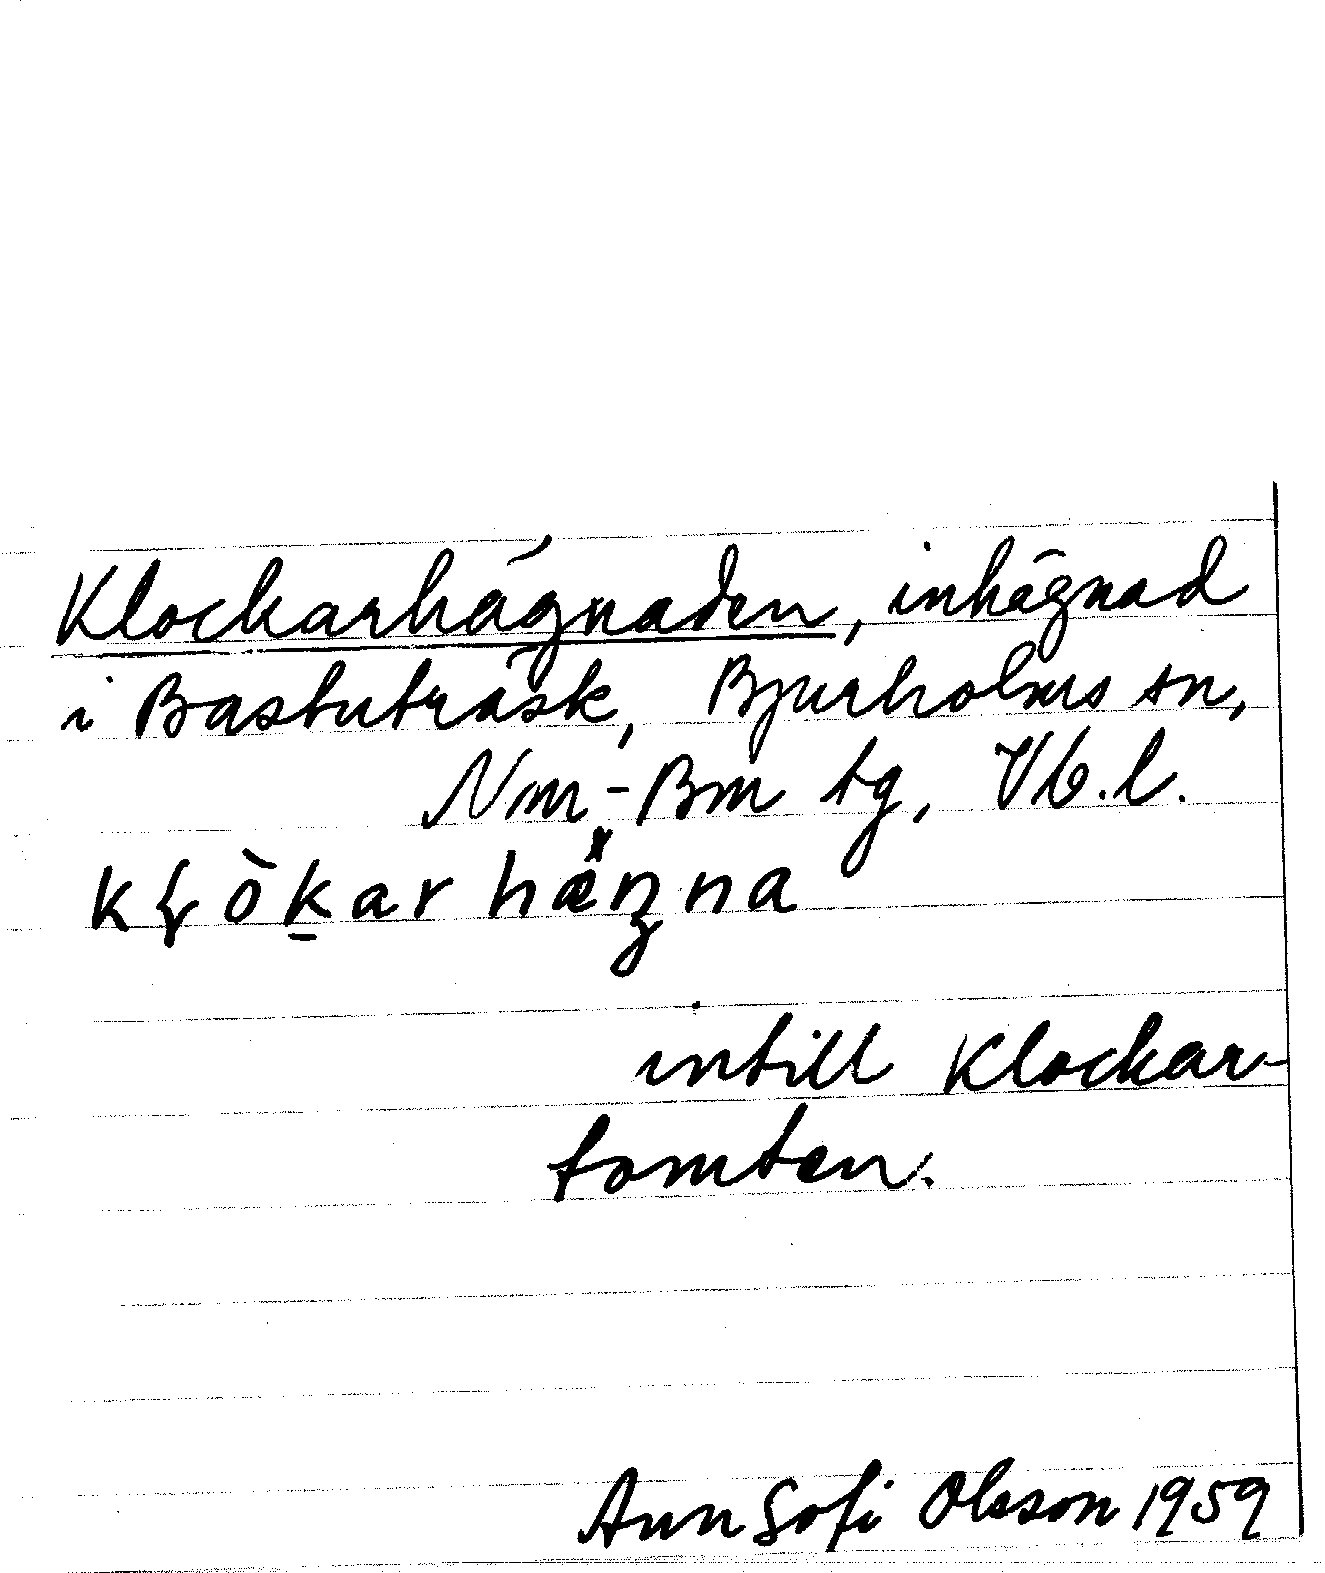 Klockarhägnaden, inhägnad
i Bastuträsk, Bjurholms sn,
Nm-Bm tg, Vb.l.
intill Klockar-
tomten.
Ann Sofi Olsson 1959